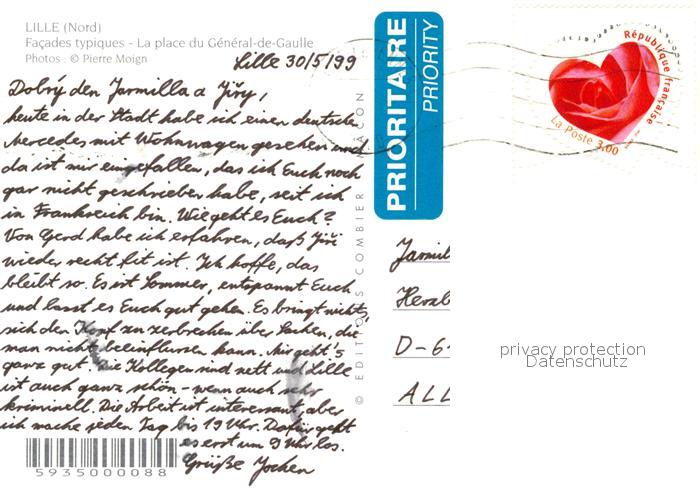 LILLE (Nord)
Façades typiques - La place du Général-de-Gaulle
Photos : © Pierre Moign
Lille 30/5/99
Dobrý den Jarmilla a Jiřy,
heute in der Stadt habe ich einen deutschen
Mercedes mit Wohnwagen gesehen und
da ist mir eingefallen, das ich Euch noch
gar nicht geschrieben habe, seit ich
in Frankreich bin. Wie geht es Euch?
Von Gerd habe ich erfahren, daß Jiři
wieder recht fit ist. Ich hoffe, das
bleibt so. Es ist Sommer, entspannt Euch
und lasst es Euch gut gehen. Es bringt nichts,
sich den Kopf zu zerbrechen über Sachen, die
man nicht beeinflussen kann. Mir geht's
ganz gut. Die Kollegen sind nett und Lille
ist auch ganz schön - wenn auch sehr
kriminell. Die Arbeit ist interessant, aber
ich mache jeden Tag bis 19 Uhr. Dafür geht
es erst um 9 Uhr los.
Grüße Jochen
5935000088
© EDITIONS COMBIER MACON
PRIORITAIRE
PRIORITY
République française
La Poste 3,00
Jarmil
Herzb
D-6
ALL
privacy protection
Datenschutz